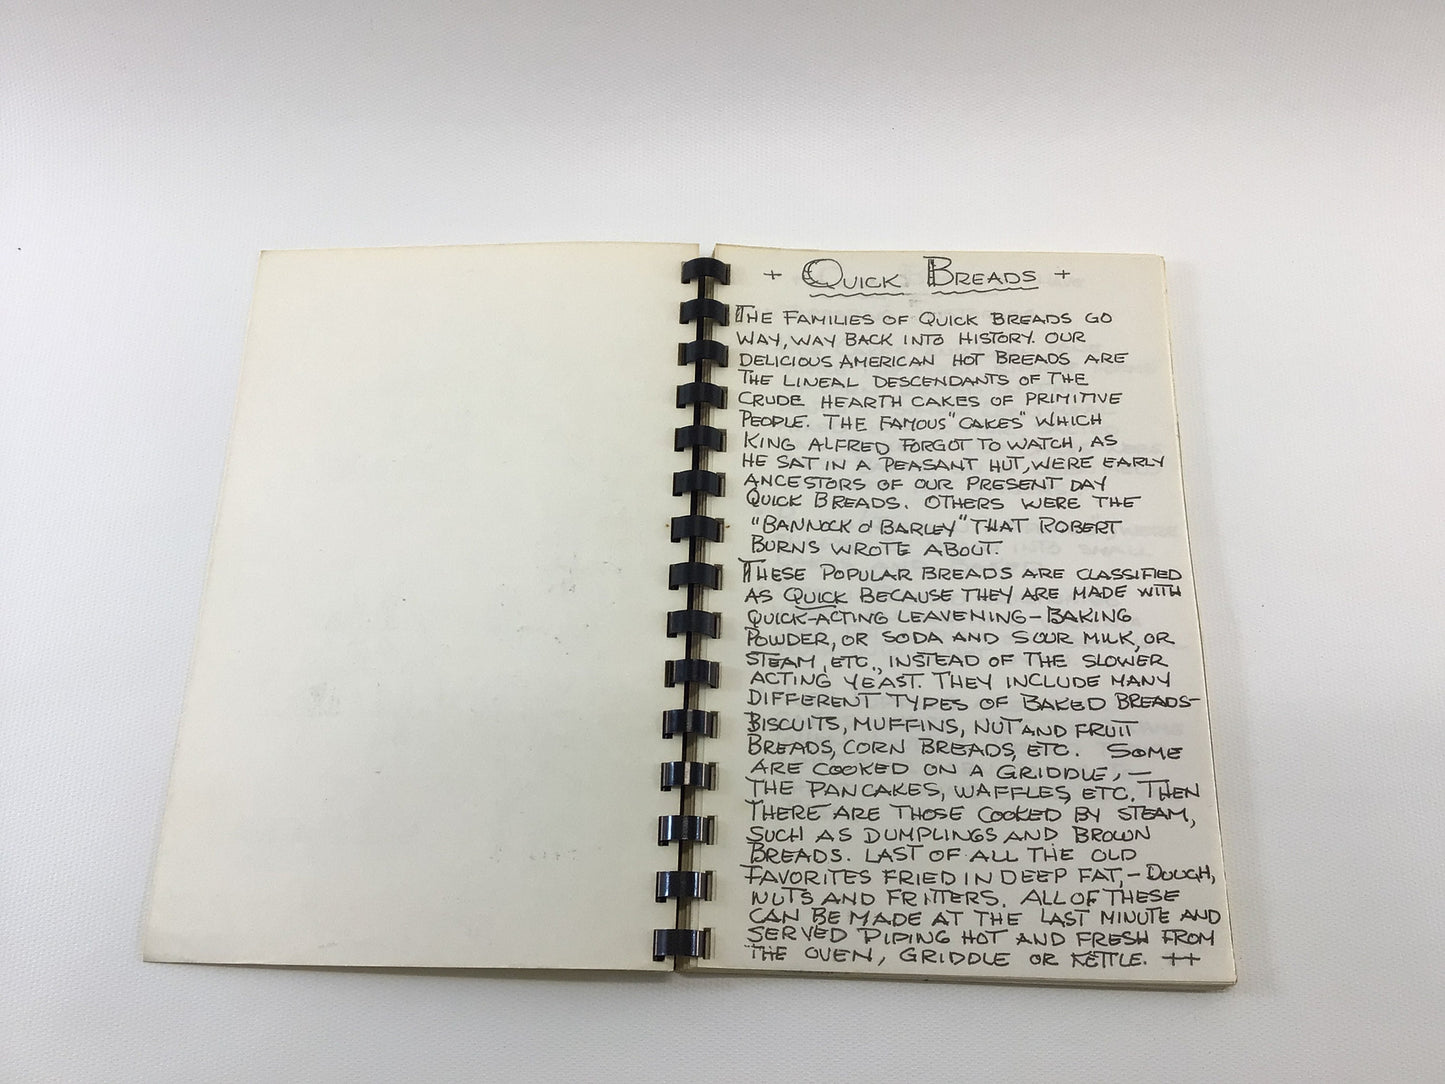 + QUICK BREADS +
THE FAMILIES OF QUICK BREADS GO
WAY, WAY BACK INTO HISTORY. OUR
DELICIOUS AMERICAN HOT BREADS ARE
THE LINEAL DESCENDANTS OF THE
CRUDE HEARTH CAKES OF PRIMITIVE
PEOPLE. THE FAMOUS "CAKES" WHICH
KING ALFRED FORGOT TO WATCH, AS
HE SAT IN A PEASANT HUT, WERE EARLY
ANCESTORS OF OUR PRESENT DAY
QUICK BREADS. OTHERS WERE THE
"BANNOCK O' BARLEY" THAT ROBERT
BURNS WROTE ABOUT.
THESE POPULAR BREADS ARE CLASSIFIED
AS QUICK BECAUSE THEY ARE MADE WITH
QUICK-ACTING LEAVENING - BAKING
POWDER, OR SODA AND SOUR MILK, OR
STEAM, ETC., INSTEAD OF THE SLOWER
ACTING YEAST. THEY INCLUDE MANY
DIFFERENT TYPES OF BAKED BREADS-
BISCUITS, MUFFINS, NUT AND FRUIT
BREADS, CORN BREADS, ETC. SOME
ARE COOKED ON A GRIDDLE, -
THE PANCAKES, WAFFLES, ETC. THEN
THERE ARE THOSE COOKED BY STEAM,
SUCH AS DUMPLINGS AND BROWN
BREADS. LAST OF ALL THE OLD
FAVORITES FRIED IN DEEP FAT, - DOUGH,
NUTS AND FRITTERS. ALL OF THESE
CAN BE MADE AT THE LAST MINUTE AND
SERVED PIPING HOT AND FRESH FROM
THE OVEN, GRIDDLE OR KETTLE. ++